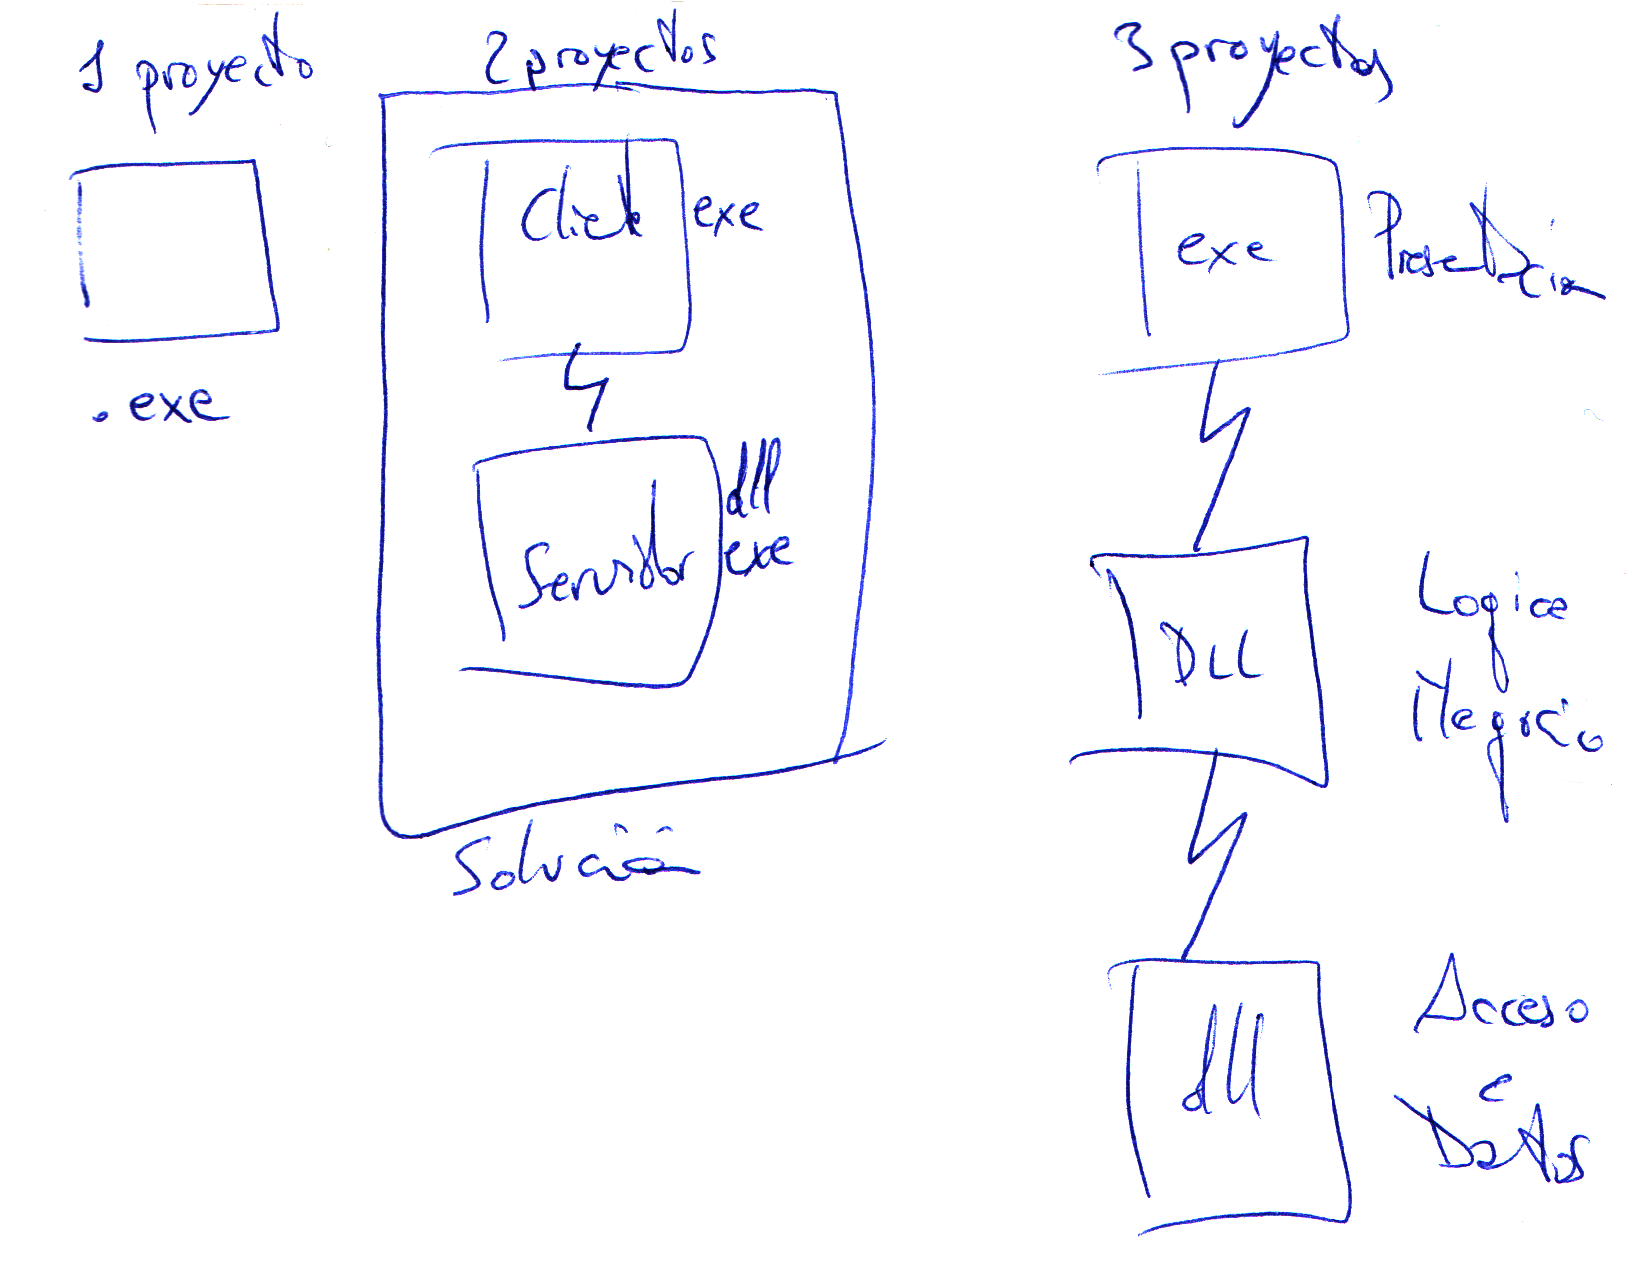 1 proyecto
.exe
2 proyectos
Client exe
Servidor dll
exe
Solución
3 proyectos
exe
Presentación
DLL
Logica
Negocio
dll
Acceso
a
Datos